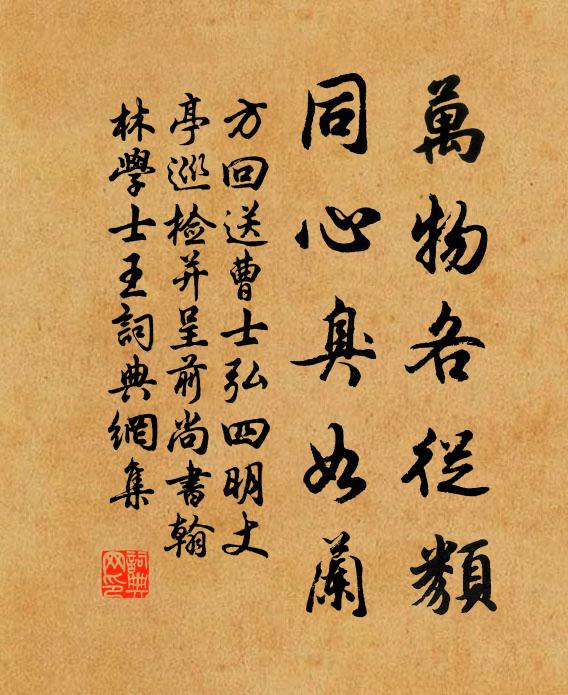 萬物各從類
同心臭如蘭
方回送曹士弘四明丈
亭巡檢并呈前尚書翰
林學士王詞典網集
詞典网印